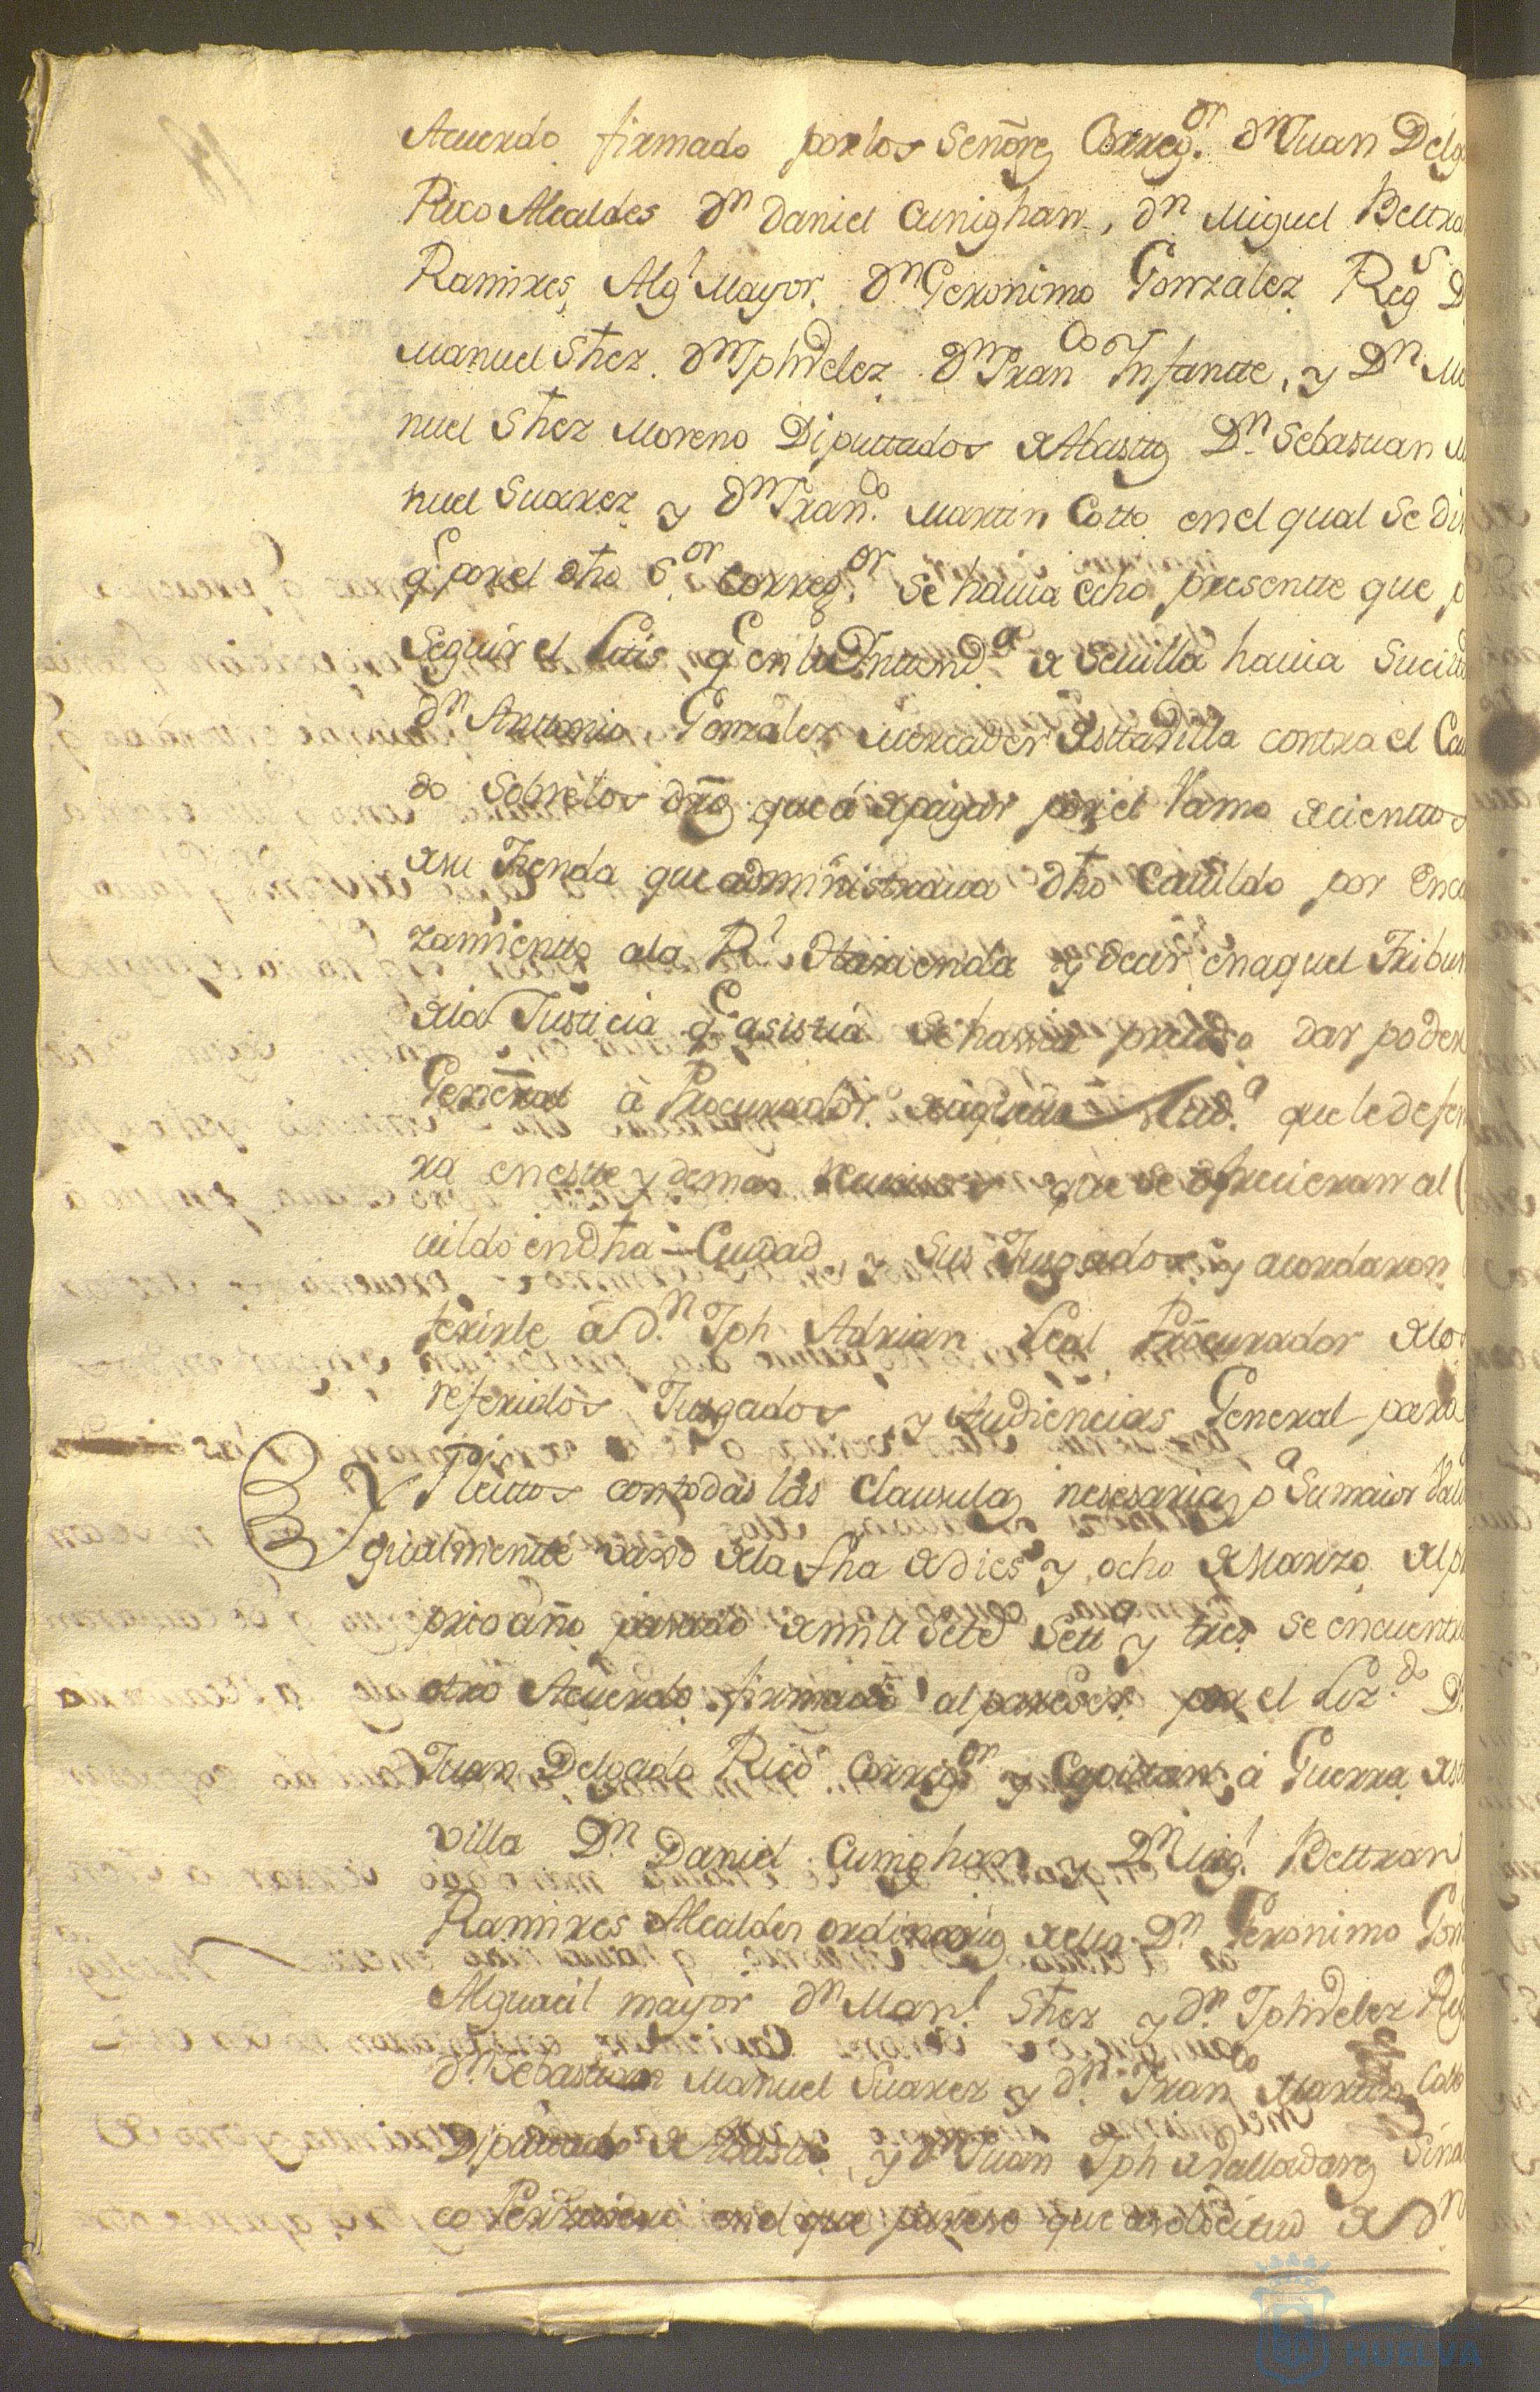 Acuerdo firmado por los Señores Correg.or Dn Juan Delg
Rico Alcaldes Dn Daniel Cunighan, Dn Miguel Beltra
Ramires, Alg.l Mayor. Dn Geronimo Gonzalez Reg.s D
Manuel Shez. Dn Jph Velez Dn Fran.co Infantte, y Dn Ma
nuel Shez Moreno Diputtados de Abastos Dn Sebastian Ma
nuel Suarez y Dn Fran.co Martin Cotto en el qual se di
q.e por el dho S.or Correg.or se havia echo presentte que p
Seguir el Litis q.e en la Inttend.a de Sevilla havia sucitad
Dn Anttonio Gonzalez Mercader de estta villa contra el Cav
do sobre los dros que á de pagar por el ramo de vienttos
de su Tienda que administrava dho Cavildo por Enca
zamientto a la R.l Hazienda y decir en aquel Tribun
de la Justicia q.e asistia se havia preciso dar poder
General à Procurador de aquella Ciud.a que le defen
ra en estte y demas recursos que se ofrecieran al C
vildo en dha Ciudad y sus Jusgados y acordaron
ferirle à Dn Jph Adrian Leal Procurador de los
referidos Jusgados y Audiencias General para
Pleittos con todas las clausulas nesesarias p.a su maior vali
Y gualmentte vajo de la fha de dies y ocho de Marzo del pr
prio año pasado de mil sets.d sett.a y tres se encuentra
otro Acuerdo firmado al pareser por el Liz.do D
Juan Delgado Rico Correg.or y Capitan á Guerra de est
villa Dn Daniel Cunighan y Dn Mig.l Beltran
Ramires Alcaldes ordinarios de ella Dn Geronimo Gon
Alguacil mayor Dn Man.l Shez y Dn Jph Velez Reg
Dn Sebastian Manuel Suarez y Dn Fran.co Martin Cotto
Diputtados de Abastos, y Dn Juan Jph de Valladares Sindi
co Personero en el que parese que a solicitud de Dn
HUELVA